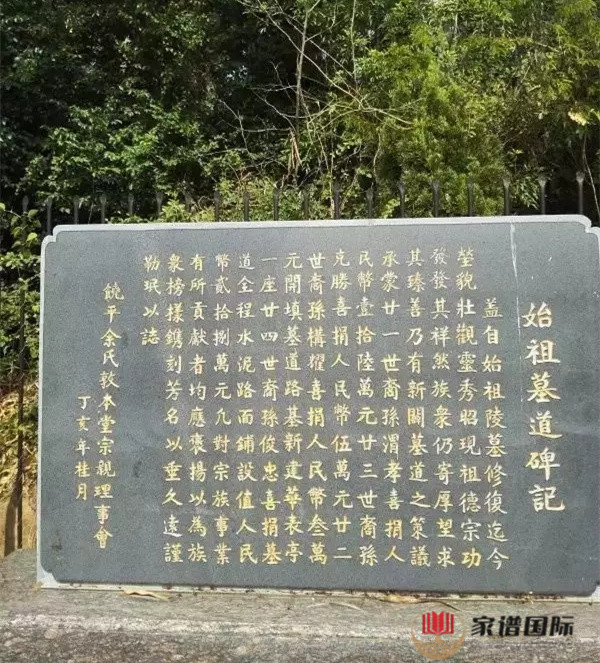 始祖墓道碑記
蓋自始祖陵墓修復迄今
塋貌壯觀靈秀昭現祖德宗功
發發其祥然族衆仍寄厚望求
其瑧善乃有新闢墓道之策議
承蒙廿一世裔孫渭孝喜捐人
民幣壹拾陸萬元廿三世裔孫
克勝喜捐人民幣伍萬元廿二
世裔孫構耀喜捐人民幣叁萬
元開填墓道路基新建華表亭
一座廿四世裔孫俊忠喜捐墓
道全程水泥路面鋪設值人民
幣貳拾捌萬元凢對宗族事業
有所貢獻者均應褒揚以為族
衆榜樣鐫刻芳名以垂久遠謹
勒珉以誌
饒平余氏敦本堂宗親理事會
丁亥年桂月
家谱国际